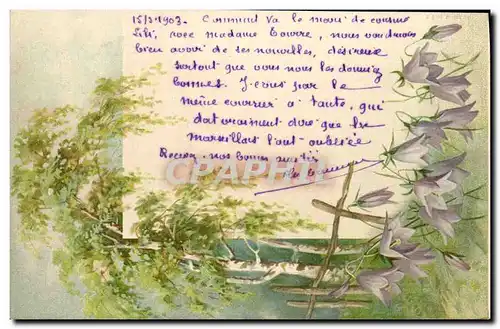 15/3-1903. Comment va le mari de cousine
Lili, avec madame Gourre, nous voudrions
bien avoir de ses nouvelles, désireux
surtout que vous nous les donniez
bonnes. J'ecris par le
même courrier à tante, qui
doit vraiment dire que les
marseillais l'ont oubliée
Recevez nos bonnes amitiés
CPArama.com